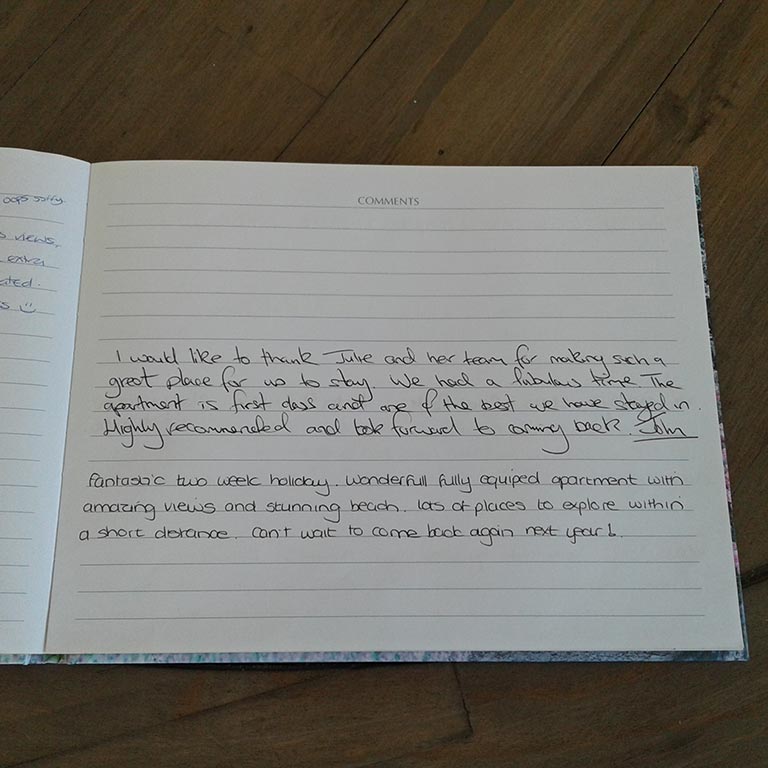 oops sorry
views,
extra
ated.
s :)
COMMENTS
I would like to thank Julie and her team for making such a
great place for us to stay. We had a fabulous time. The
apartment is first class and one of the best we have stayed in.
Highly recommended and look forward to coming back. John
fantastic two week holiday. wonderfull fully equiped apartment with
amazing views and stunning beach. lots of places to explore within
a short distance. can't wait to come back again next year!